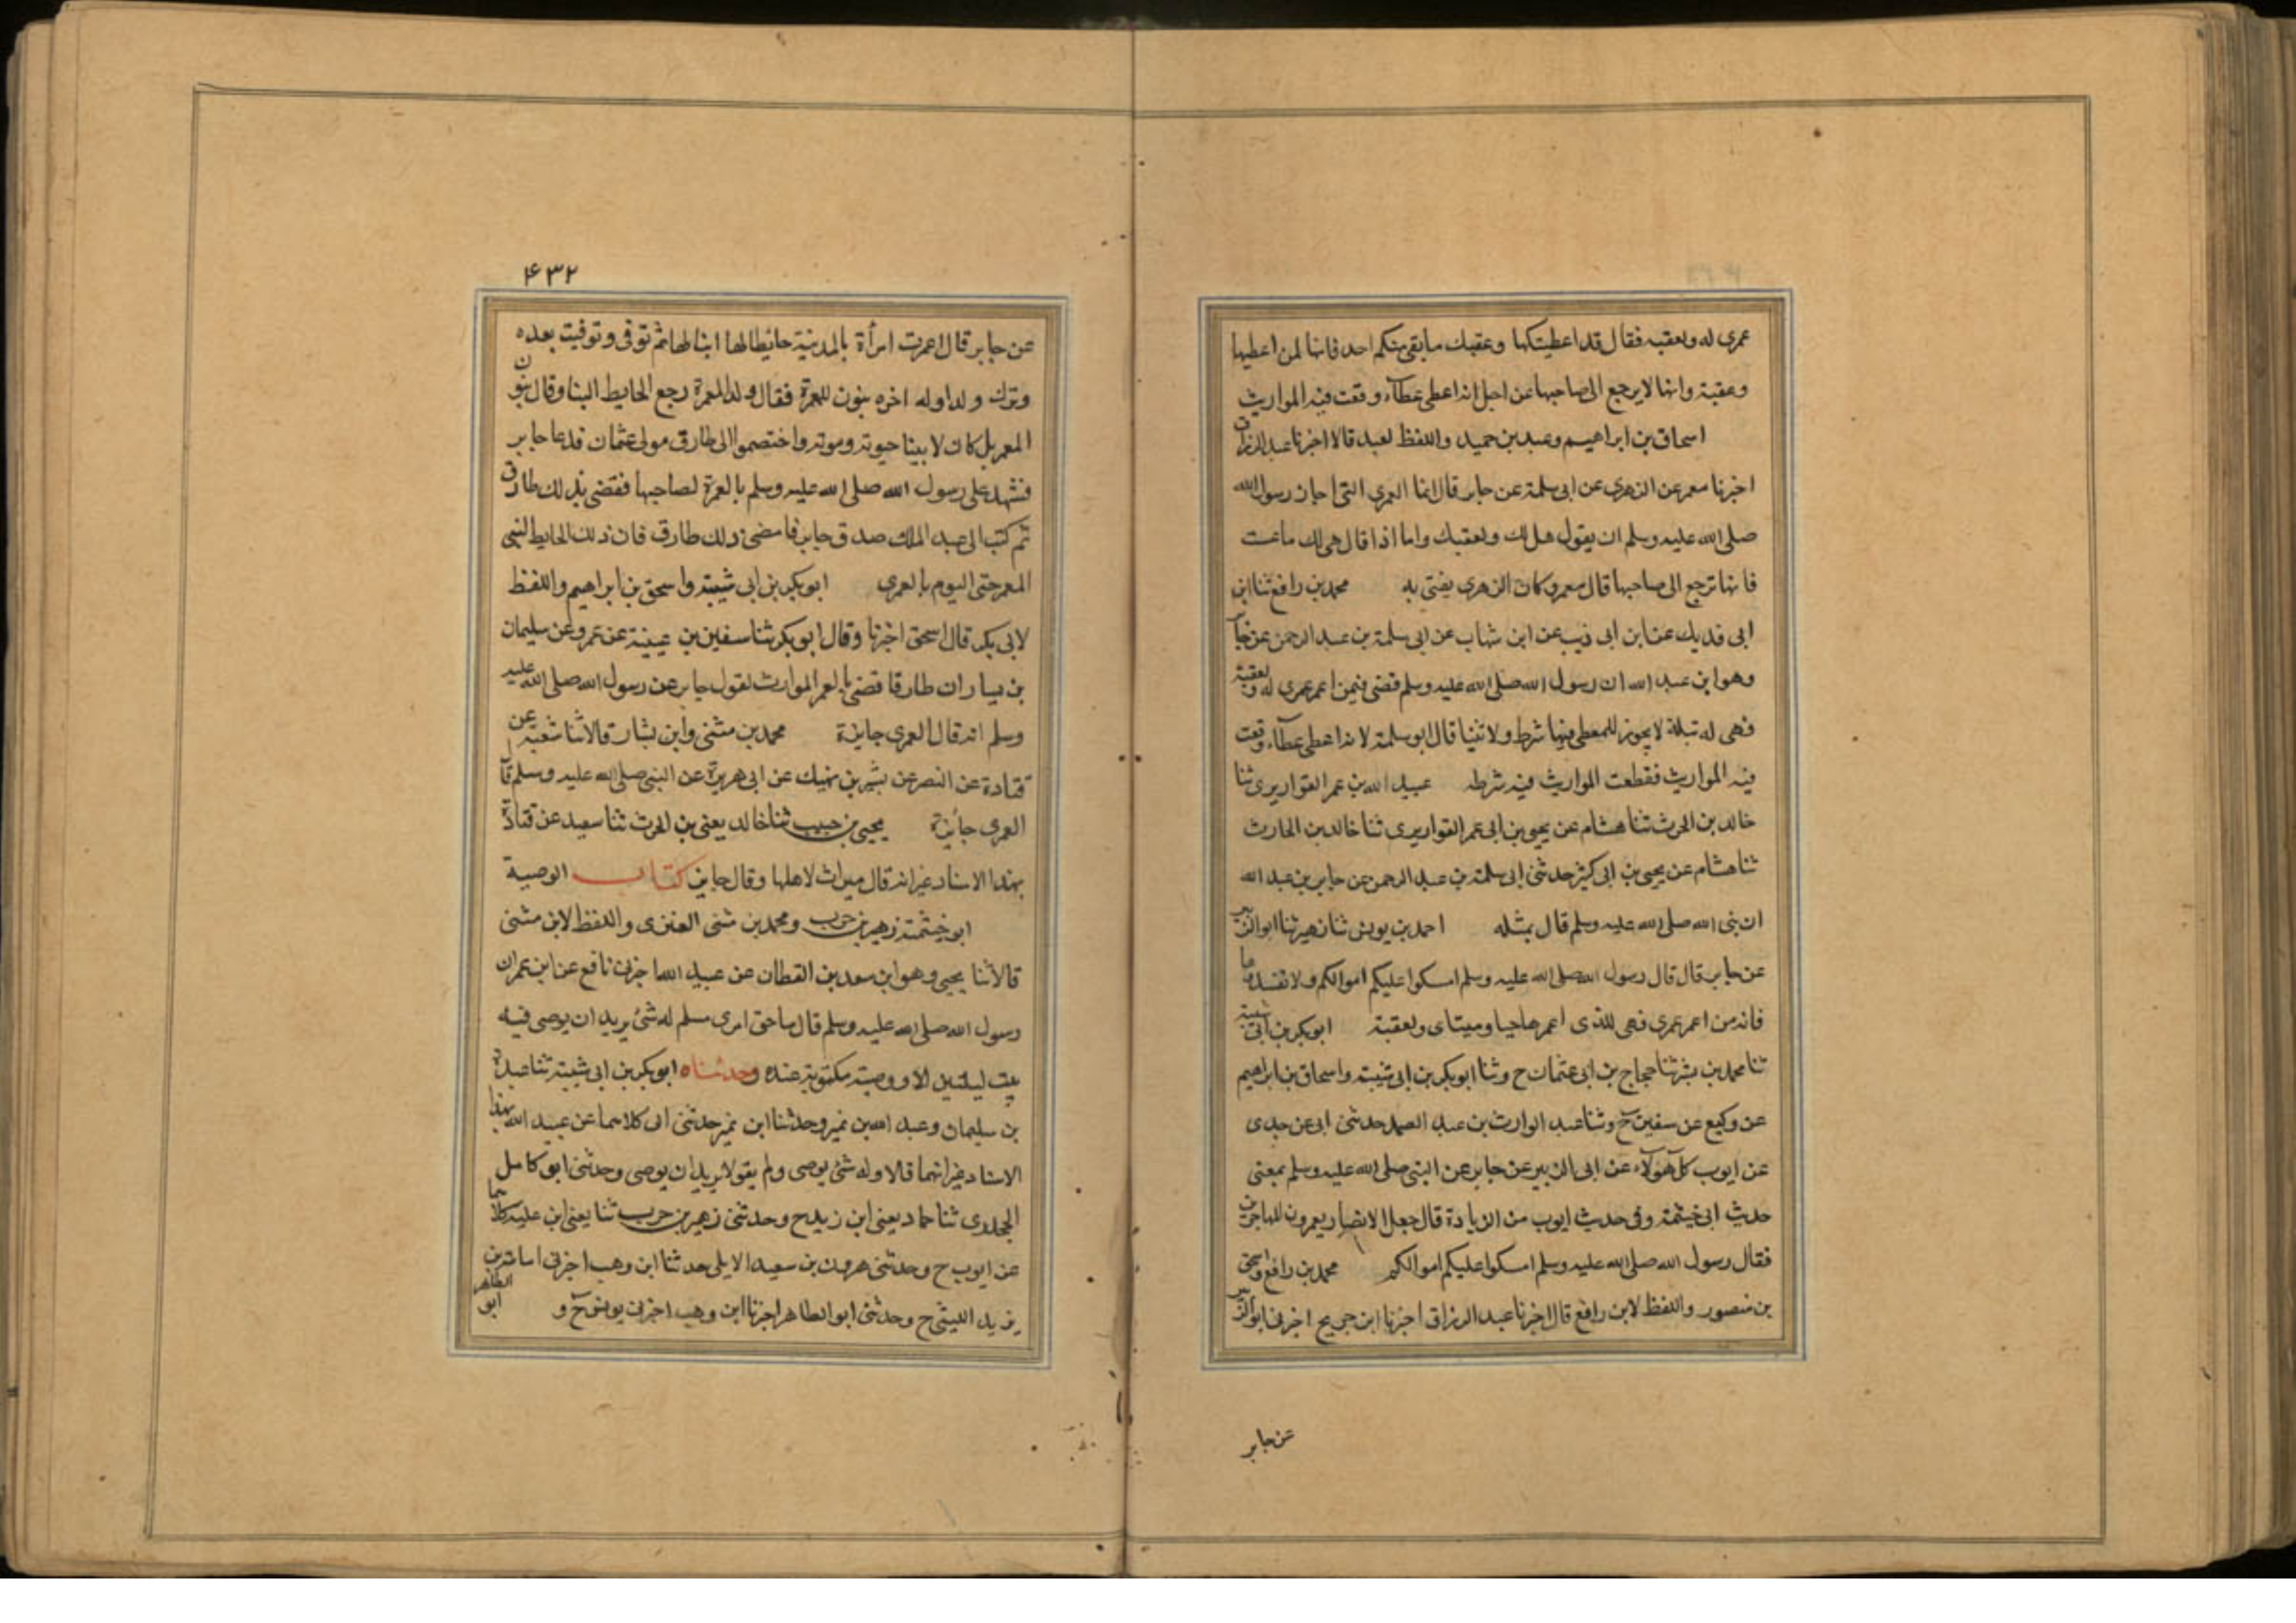 عمرى له ولعقبه فقال قد اعطيتكها وعقبك ما بقى منكم احد فانها لمن اعطيها
وعقبه وانها لا يرجع الى صاحبها من اجل انه اعطى عطاء وقعت فيه المواريث
اسحاق بن ابراهيم وعبد بن حميد واللفظ لعبد قالا اخبرنا عبد الرزاق
اخبرنا معمر عن الزهرى عن ابى سلمة عن جابر قال انما العمرى التى اجاز رسول الله
صلى الله عليه وسلم ان يقول هى لك ولعقبك واما اذا قال هى لك ما عشت
فانها ترجع الى صاحبها قال معمر وكان الزهرى يفتى به محمد بن رافع ثنا ابن
ابى فديك عن ابن ابى ذيب عن ابن شهاب عن ابى سلمة بن عبد الرحمن عن جابر
وهو ابن عبد الله ان رسول الله صلى الله عليه وسلم قضى فيمن اعمر عمرى له ولعقبه
فهى له بتلة لا يجوز للمعطى فيها شرط ولا ثنيا قال ابو سلمة لانه اعطى عطاء وقعت
فيه المواريث فقطعت المواريث فيه شرطه عبيد الله بن عمر القواريرى ثنا
خالد بن الحرث ثنا هشام عن يحيى بن ابى عمر القواريرى ثنا خالد بن الحارث
ثنا هشام عن يحيى بن ابى كثير حدثنى ابى سلمة بن عبد الرحمن عن جابر بن عبد الله
ان نبى الله صلى الله عليه وسلم قال بمثله احمد بن يونس ثنا زهير ثنا ابو الزبير
عن جابر قال قال رسول الله صلى الله عليه وسلم امسكوا عليكم اموالكم ولا تفسدوها
فانه من اعمر عمرى فهى للذى اعمرها حيا وميتا ولعقبه ابو بكر بن ابى شيبة
ثنا محمد بن بشر ثنا حجاج بن ابى عثمان ح وثنا ابو بكر بن ابى شيبة واسحاق بن ابراهيم
عن وكيع عن سفين ح وثنا عبد الوارث بن عبد الصمد حدثنى ابى عن جدى
عن ايوب كل هؤلاء عن ابى الزبير عن جابر عن النبى صلى الله عليه وسلم بمعنى
حديث ابى خيثمة وفى حديث ايوب من الزيادة قال جعل الانصار يعمرون المهاجرين
فقال رسول الله صلى الله عليه وسلم امسكوا عليكم اموالكم محمد بن رافع واسحق
بن منصور واللفظ لابن رافع قال اخبرنا عبد الرزاق اخبرنا ابن جريج اخبرنى ابو الزبير
عن جابر
۴۳۲
عن جابر قال اعمرت امرأة بالمدينة حائطا لها ابنا لها ثم توفى وتوفيت بعده
وترك ولدا وله اخوه بنون للمعمرة فقال ولد المعمرة رجع الحايط الينا وقال بنو
المعمر بل كان لابينا حيوته وموته واختصموا الى طارق مولى عثمان فدعا جابر
فشهد على رسول الله صلى الله عليه وسلم بالعمرة لصاحبها فقضى بذلك طارق
ثم كتب الى عبد الملك صدق جابر فامضى ذلك طارق فان ذلك الحايط لبنى
المعمر حتى اليوم بالعمرى ابو بكر بن ابى شيبة واسحق بن ابراهيم واللفظ
لابى بكر قال اسحق اخبرنا وقال ابو بكر ثنا سفين بن عيينة عن عمرو عن سليمان
بن يسار ان طارقا قضى بالعمر الموارث لقول جابر عن رسول الله صلى الله عليه
وسلم انه قال العمرى جايزة محمد بن مثنى وابن بشار قالا ثنا شعبة عن
قتادة عن النصر عن بشير بن نهيك عن ابى هريرة عن النبى صلى الله عليه وسلم قال
العمرى جائزة يحيى بن حبيب ثنا خالد يعنى بن الحرث ثنا سعيد عن قتادة
بهذا الاسناد غير انه قال ميراث لاهلها وقال جايز كتاب الوصية
ابو خيثمة زهير بن حرب ومحمد بن مثنى العنزى واللفظ لابن مثنى
قالا ثنا يحيى وهو ابن سعد بن القطان عن عبيد الله اخبرنى نافع عن ابن عمر ان
رسول الله صلى الله عليه وسلم قال ما حق امرى مسلم له شئ يريد ان يوصى فيه
يبت ليلتين الا ووصيته مكتوبة عنده وحدثناه ابو بكر بن ابى شيبة ثنا عبدة
بن سليمان وعبد الله بن نمير وحدثنا ابن نمير حدثنى ابى كلاهما عن عبيد الله بهذا
الاسناد غير انهما قالا وله شئ يوصى ولم يقولا يريد ان يوصى وحدثنى ابو كامل
الجحدرى ثنا حماد يعنى ابن زيد ح وحدثنى زهير بن حرب ثنا يعنى ابن علية كلاهما
عن ايوب ح وحدثنى هرون بن سعيد الايلى حدثنا ابن وهب اخبرنى اسامة بن
يزيد الليثى ح وحدثنى ابو الطاهر اخبرنا ابن وهب اخبرنى يونس ح و ابو الطاهر